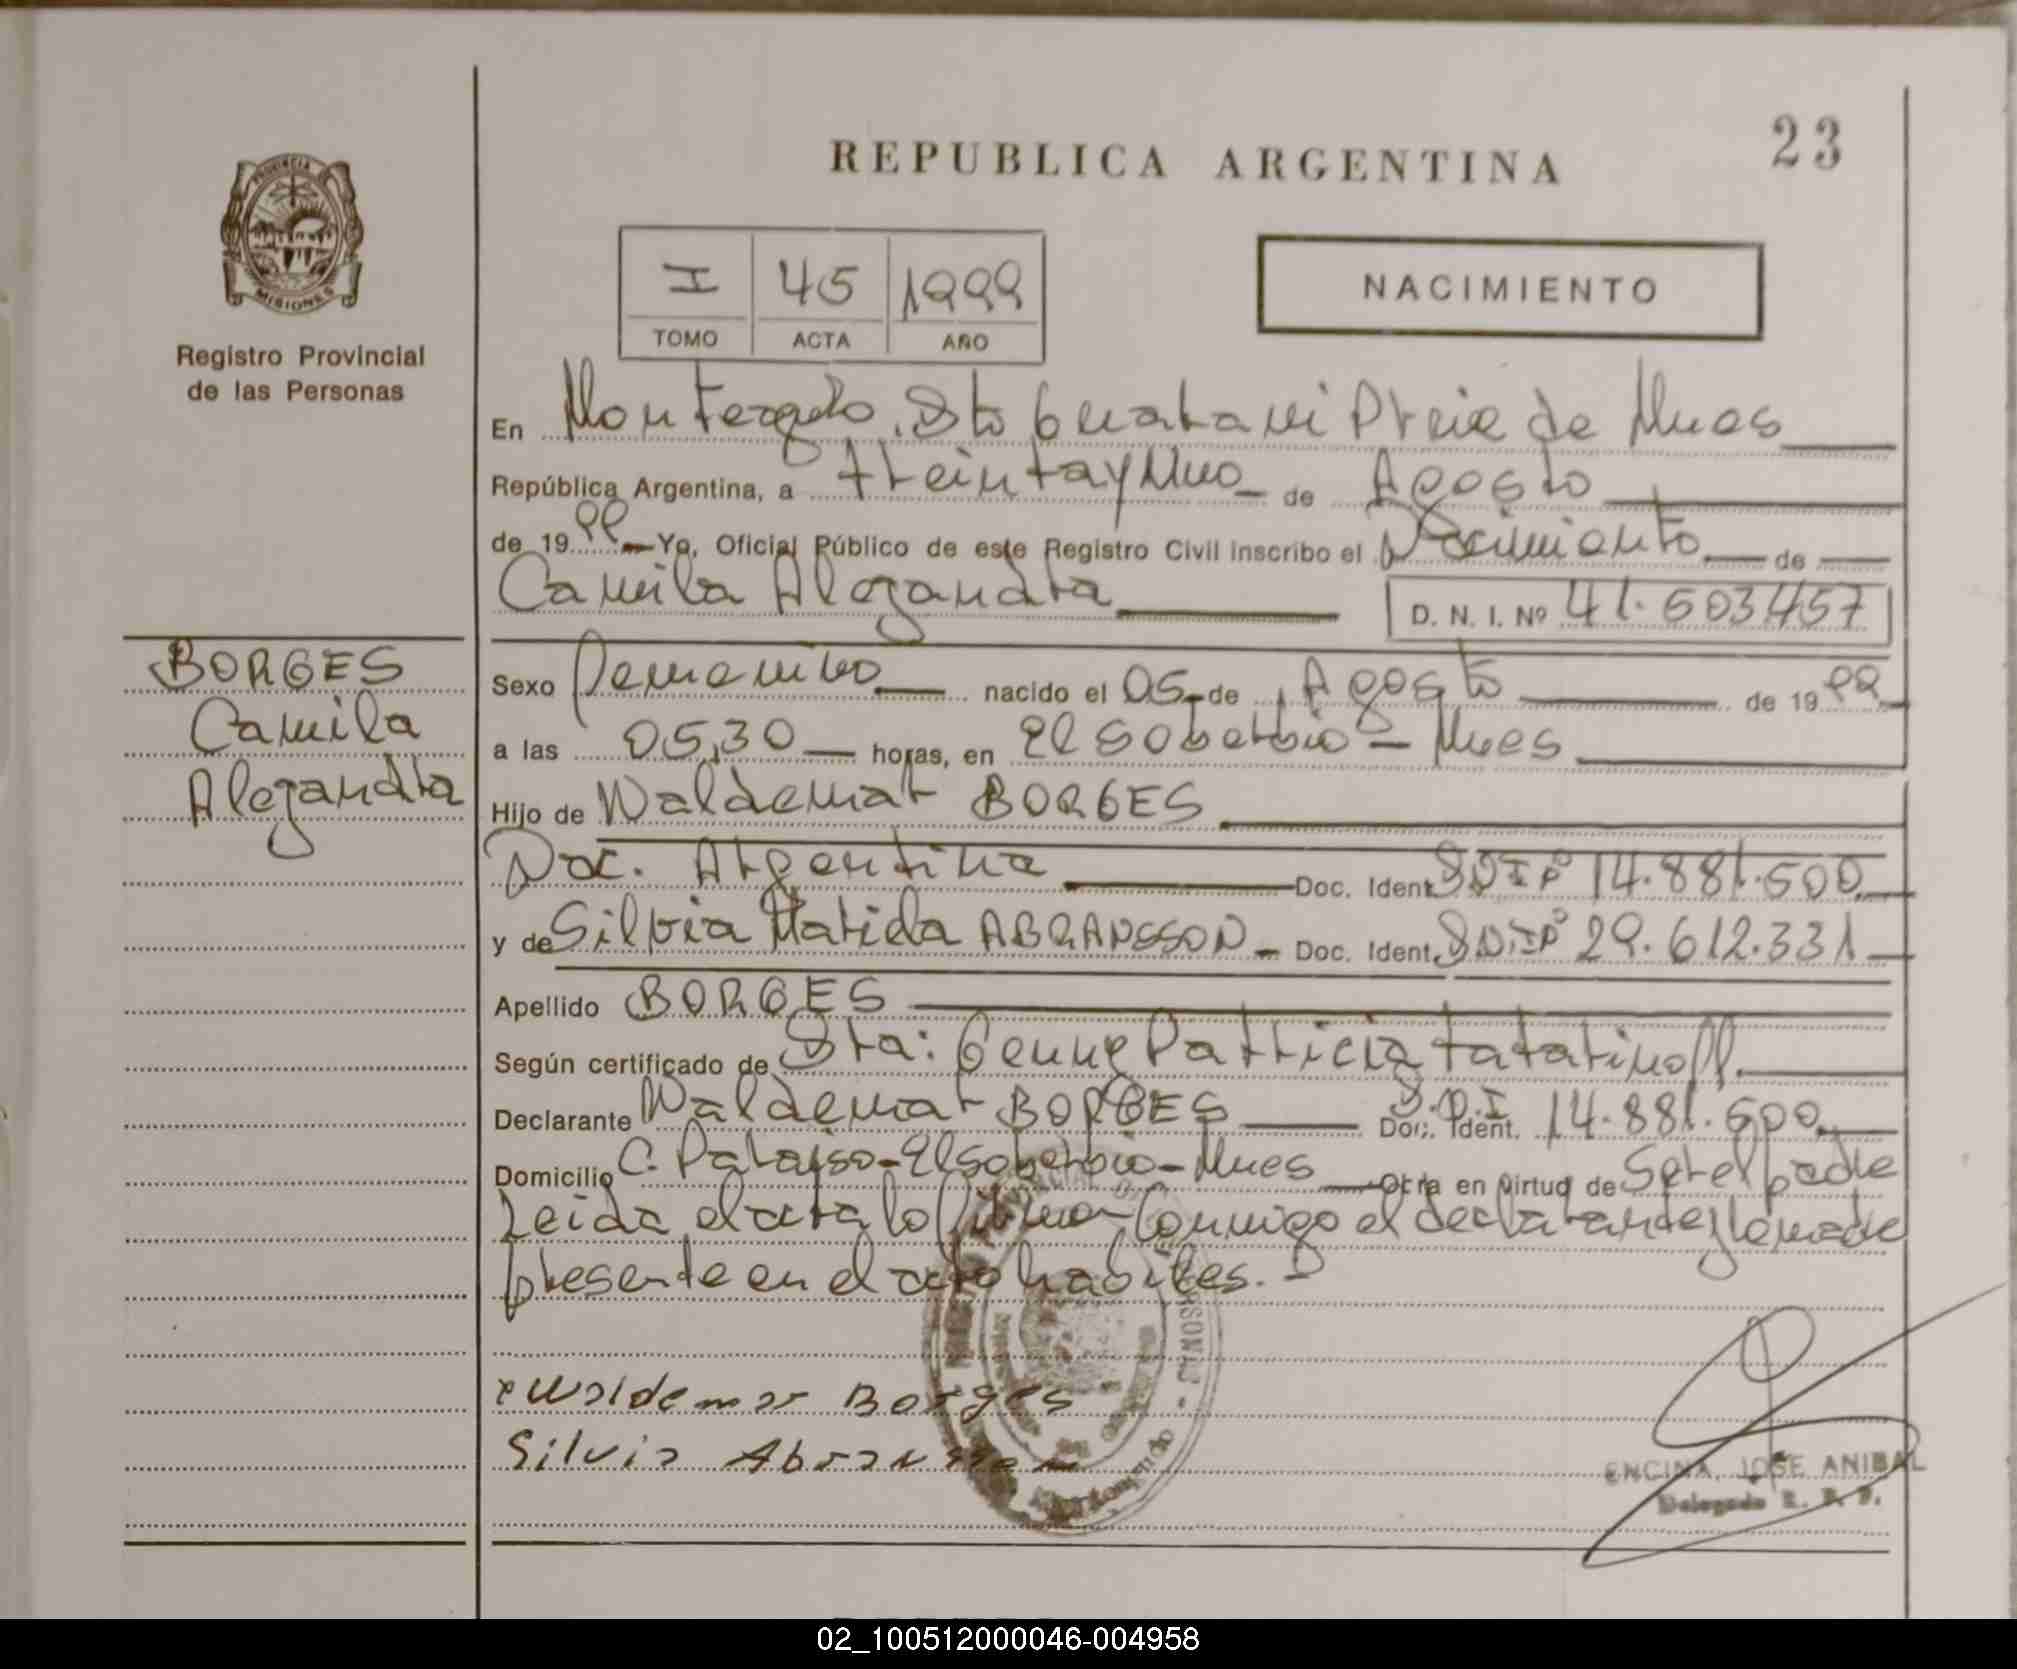 23
REPUBLICA ARGENTINA
PROVINCIA
MISIONES
Registro Provincial
de las Personas
I 45 1999
TOMO ACTA AÑO
NACIMIENTO
En Monteagudo, Dto Guarani Pcia de Mnes
República Argentina, a treinta y uno de Agosto
de 1999 Yo, Oficial Público de este Registro Civil inscribo el Nacimiento de
Camila Alejandra D. N. I. Nº 41.503457
BORGES
Camila
Alejandra
Sexo Femenino nacido el 05 de Agosto de 1999
a las 05,30 horas, en El Soberbio - Mnes
Hijo de Waldemar BORGES
Nac. Argentina Doc. Ident. DNINº 14.881.500
y de Silvia Matilda ABRANSSON - Doc. Ident. DNINº 29.612.331
Apellido BORGES
Según certificado de Dra: Genny Patricia Tatarinoff.
Declarante Waldemar BORGES Doc. Ident. D.N.I 14.881.500
Domicilio C. Paraiso - El Soberbio - Mnes Obra en virtud de Ser el padre
Leida el acta lo firman conmigo el declarante y la madre
presente en el acto habiles.
Waldemar Borges
Silvia Abransson
ENCINA, JOSE ANIBAL
Delegado R. P. P.
02_100512000046-004958